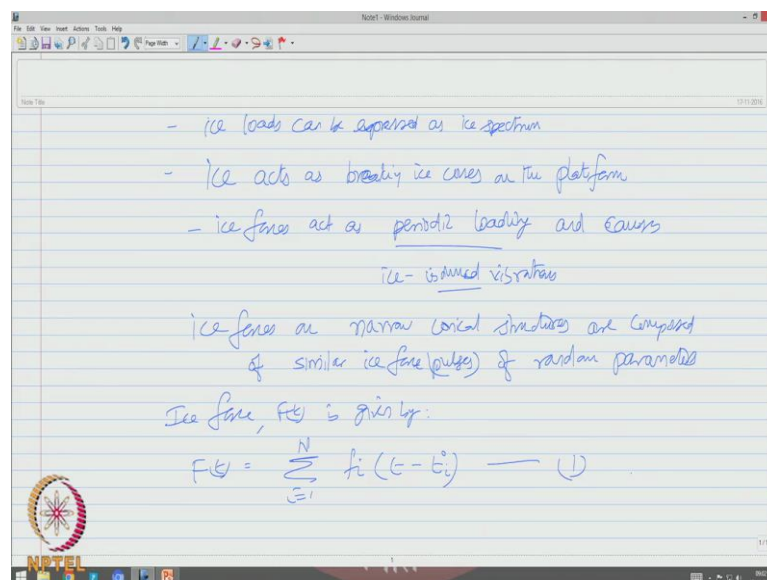 Note1 - Windows Journal
File Edit View Insert Actions Tools Help
Page Width
Note Title
17-11-2016
- ice loads can be expressed as ice spectrum
- Ice acts as breaking ice cones on the platform
- ice forces act as periodic loading and causes
ice-induced vibrations
ice forces on narrow conical structures are composed
of similar ice force (pulses) of random parameters
Ice force, F(t) is given by:
F(t) = N∑i=1 fi (t - ti) — (1)
NPTEL
1
1/1